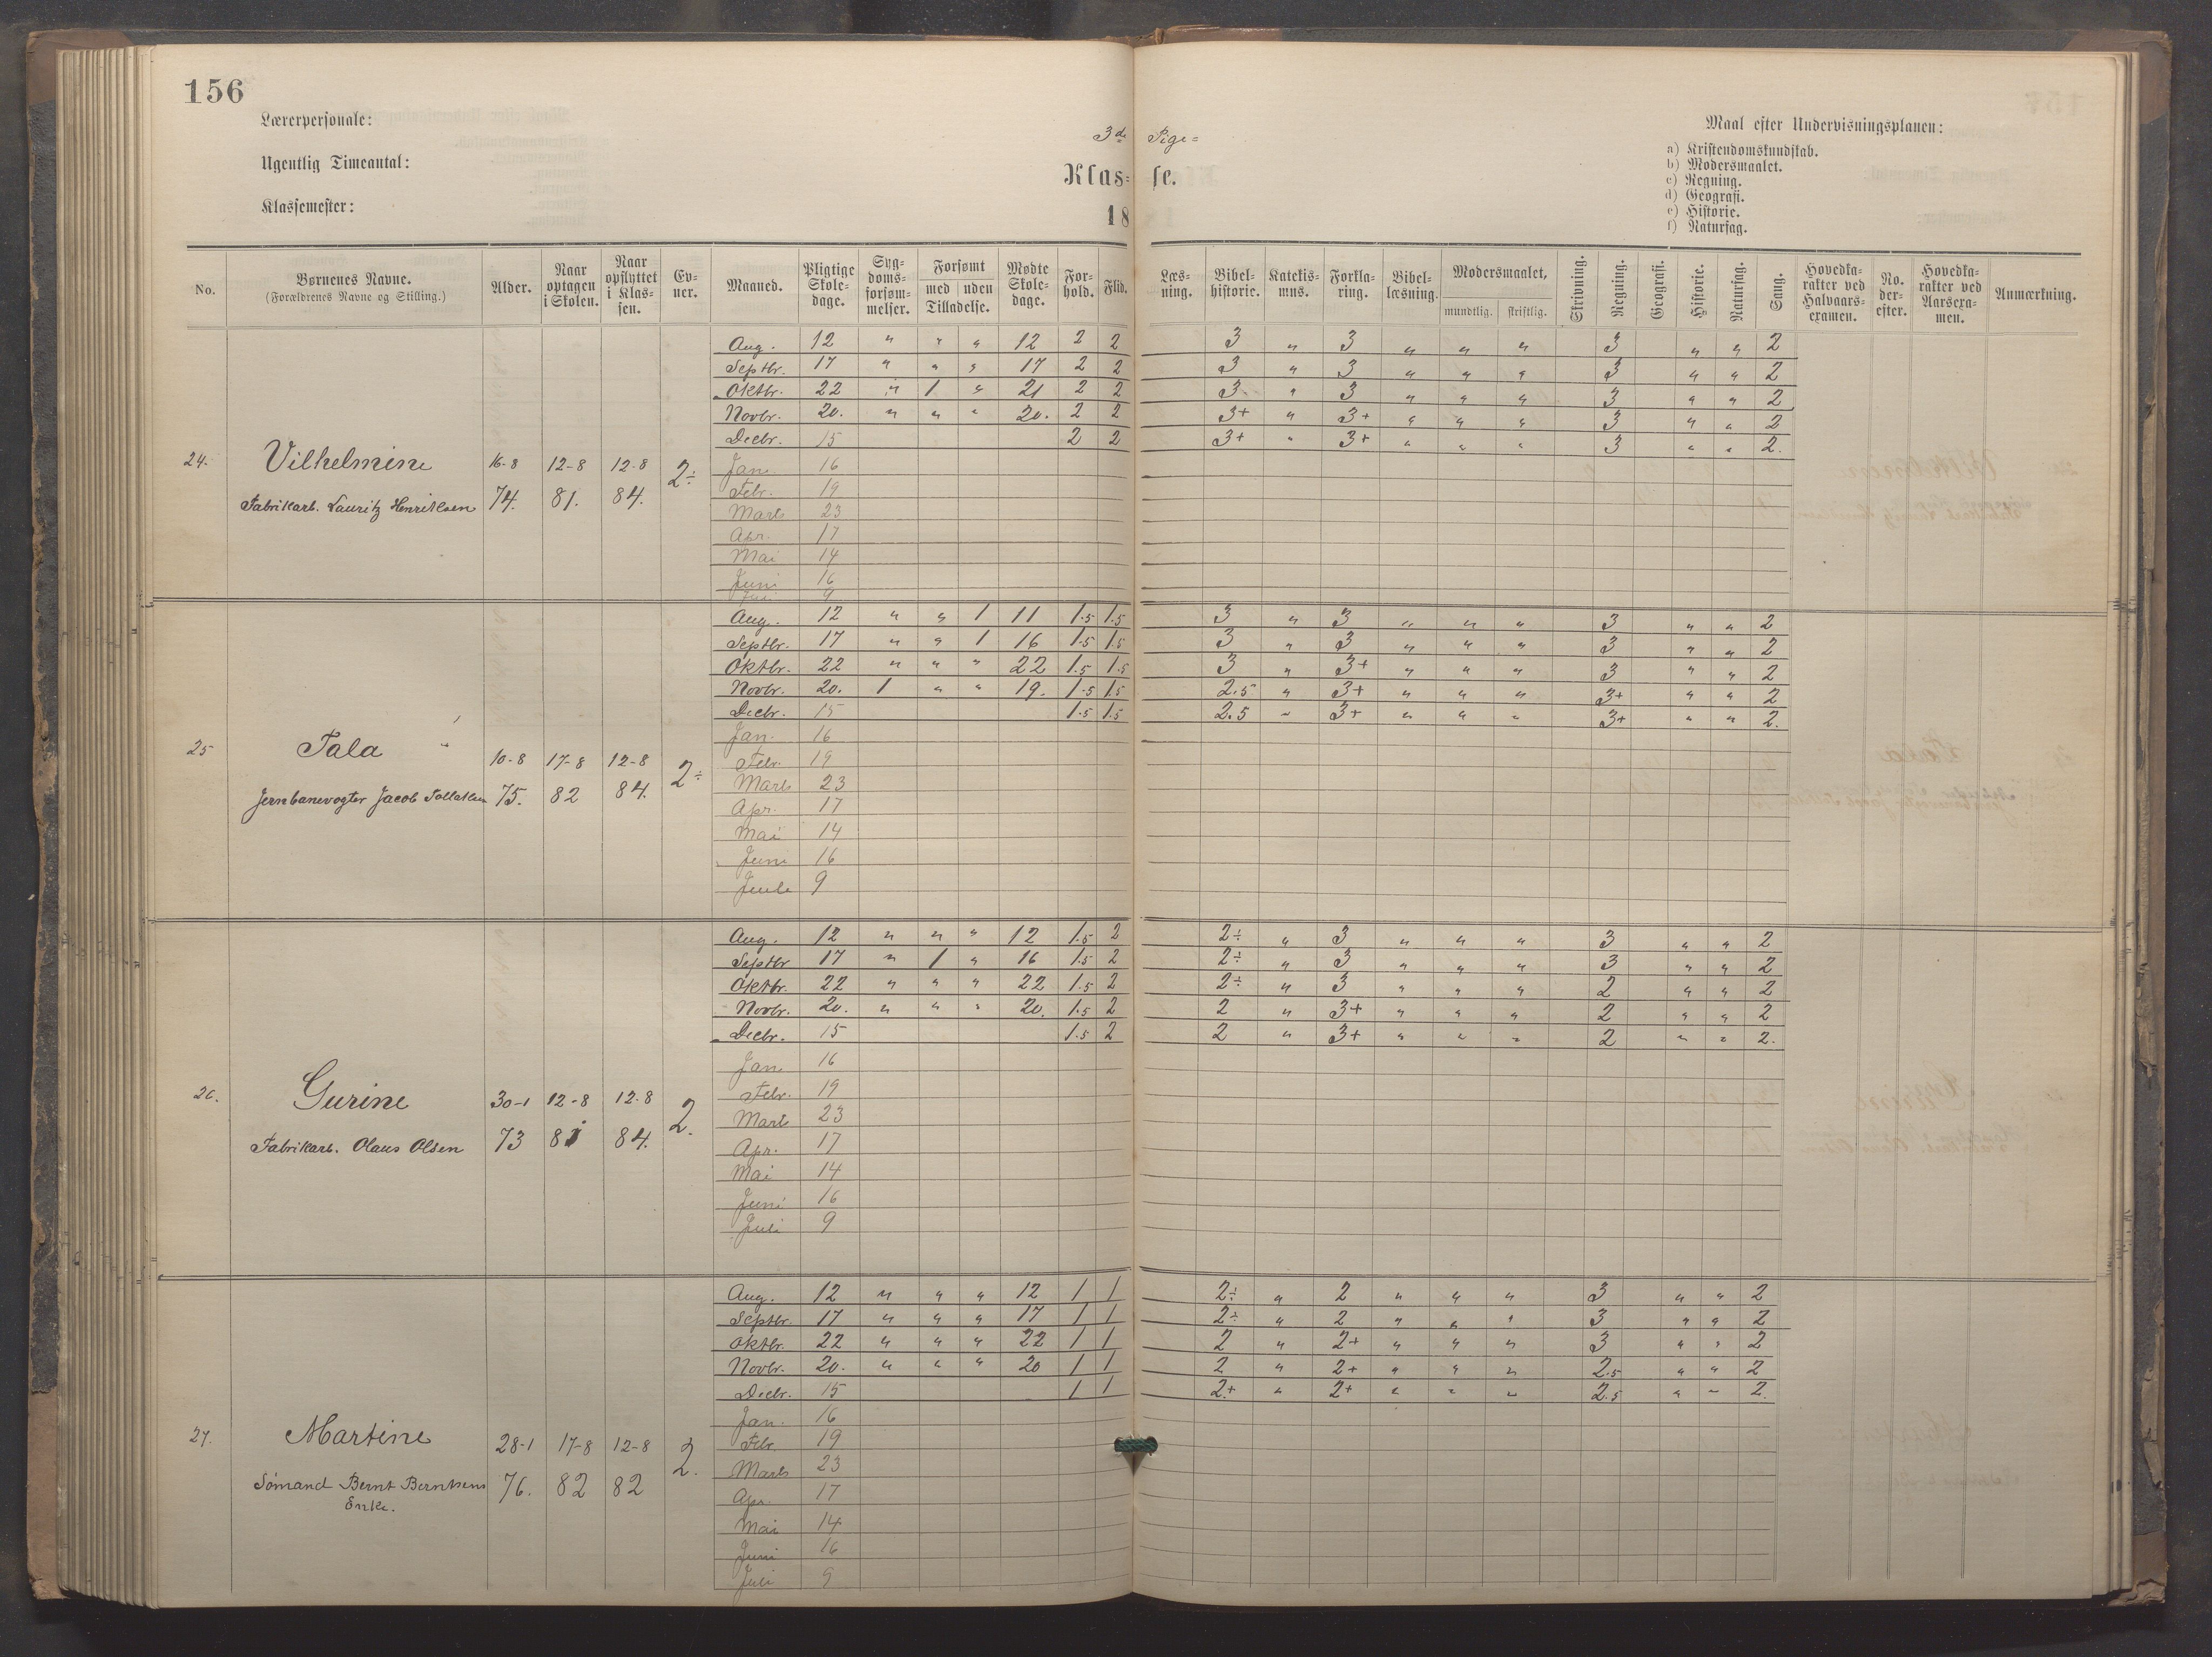 156
Lærerpersonale:
Ugentlig Timeantal:
Klassemester:
3de Pige=
Klas= se.
18
Maal efter Undervisningsplanen:
a) Kristendomskundskab.
b) Modersmaalet.
c) Regning.
d) Geografi.
e) Historie.
f) Naturfag.
No. Børnenes Navne. (Forældrenes Navne og Stilling.) Alder. Naar optagen i Skolen. Naar opflyttet i Klassen. Evner. Maaned. Pligtige Skoledage. Sygdomsforsømmelser. Forsømt med uden Tilladelse. Mødte Skoledage. Forhold. Flid. Læsning. Bibelhistorie. Katekismus. Forklaring. Bibellæsning. Modersmaalet, mundtlig. skriftlig. Skrivning. Regning. Geografi. Historie. Naturfag. Sang. Hovedkarakter ved Halvaarsexamen. No. derefter. Hovedkarakter ved Aarsexamen. Anmærkning.
24. Vilhelmine 16-8 12-8 12-8 2÷
Fabrikarb. Lauritz Henriksen 74. 81. 84.
Aug. 12 " " " 12 2 2 3 " 3 " " " 3 " " 2
Septbr. 17 " " " 17 2 2 3 " 3 " " " 3 " " 2
Oktbr. 22 " 1 " 21 2 2 3 " 3 " " " 3 " " 2
Novbr. 20. " " " 20. 2 2 3+ " 3+ " " " 3 " " 2
Decbr. 15 2 2 3+ " 3+ " " " 3 " " 2.
Jan. 16
Febr. 19
Marts 23
Apr. 17
Mai 14
Juni 16
Juli 9
25 Tala 10-8 17-8 12-8 2÷
Jernbanevogter Jacob 75. 82 84.
Aug. 12 " " 1 11 1.5 1.5 3 " 3 " " " 3 " " 2
Septbr. 17 " " 1 16 1.5 1.5 3 " 3 " " " 3 " " 2
Oktbr. 22 " " " 22 1.5 1.5 3 " 3+ " " " 3 " " 2
Novbr. 20. 1 " " 19. 1.5 1.5 2.5 " 3+ " " " 3+ " " 2
Decbr. 15 1.5 1.5 2.5 " 3+ " " " 3+ " " 2.
Jan. 16
Febr. 19
Marts 23
Apr. 17
Mai 14
Juni 16
Juli 9
26. Gurine 30-1 12-8 12.8 2.
Fabrikarb. Olaus Olsen 73 81 84.
Aug. 12 " " " 12 1.5 2 2÷ " 3 " " " 3 " " 2
Septbr 17 " 1 " 16 1.5 2 2÷ " 3 " " " 3 " " 2
Oktbr. 22 " " " 22 1.5 2 2÷ " 3 " " " 2 " " 2
Novbr. 20. " " " 20. 1.5 2 2 " 3+ " " " 2 " " 2
Decbr. 15 1.5 2 2 " 3+ " " " 2 " " 2.
Jan. 16
Febr. 19
Marts 23
Apr. 17
Mai 14
Juni 16
Juli 9
27. Martine 28-1 17-8 12-8 2.
Sömand Bernt Berntsens 76. 82 82
Enke.
Aug. 12 " " " 12 1 1 2÷ " 2 " " " 3 " " 2
Septbr. 17 " " " 17 1 1 2÷ " 2 " " " 3 " " 2
Oktbr. 22 " " " 22 1 1 2 " 2+ " " " 3 " " 2
Novbr. 20. " " " 20 1 1 2 " 2+ " " " 2.5 " " 2
Decbr. 15 1 1 2+ " 2+ " " " 2.5 " " 2.
Jan. 16
Febr. 19
Marts 23
Apr. 17
Mai 14
Juni 16
Juli 9